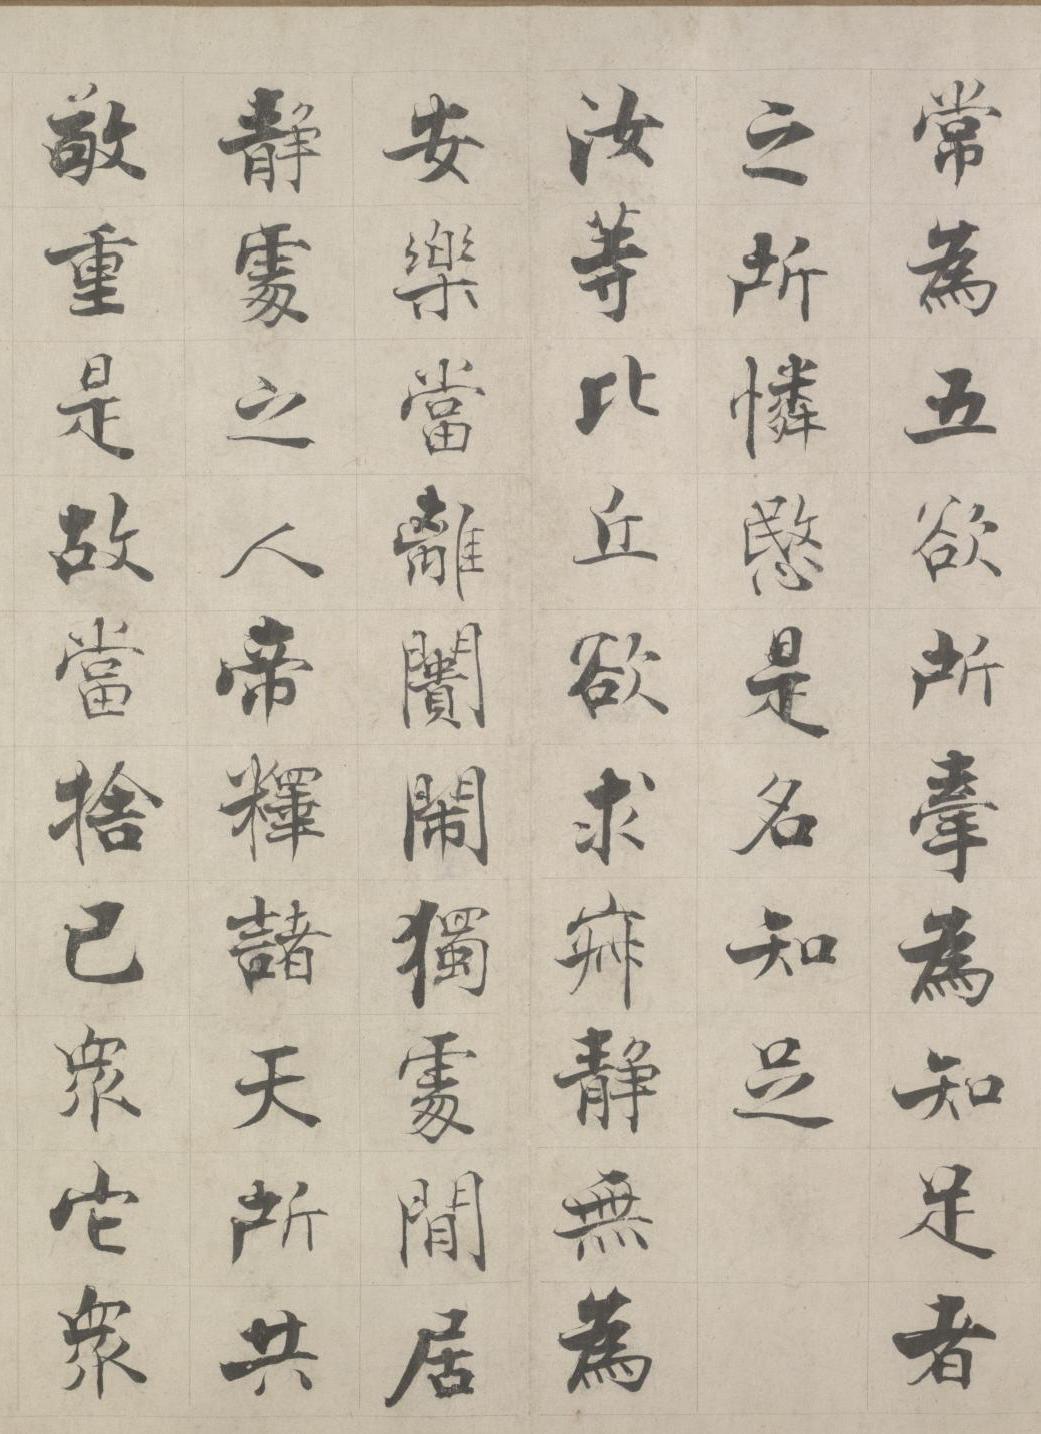 常為五欲所牽為知足者
之所憐愍是名知足
汝等比丘欲求寂靜無為
安樂當離闠閙獨處閒居
靜處之人帝釋諸天所共
敬重是故當捨己眾它眾